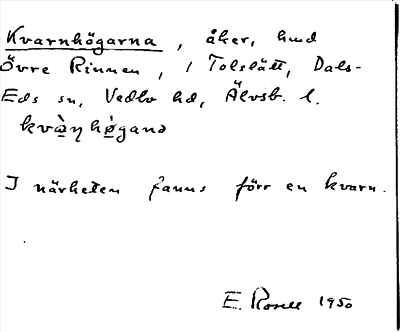 Kvarnhögarna, åker, hmd
Övre Rinnen, i Tolslätt, Dals-
Eds sn, Vedbo hd, Älvsb. l.
kvàn hø̀gana
I närheten fanns förr en kvarn.
E. Rosell 1950